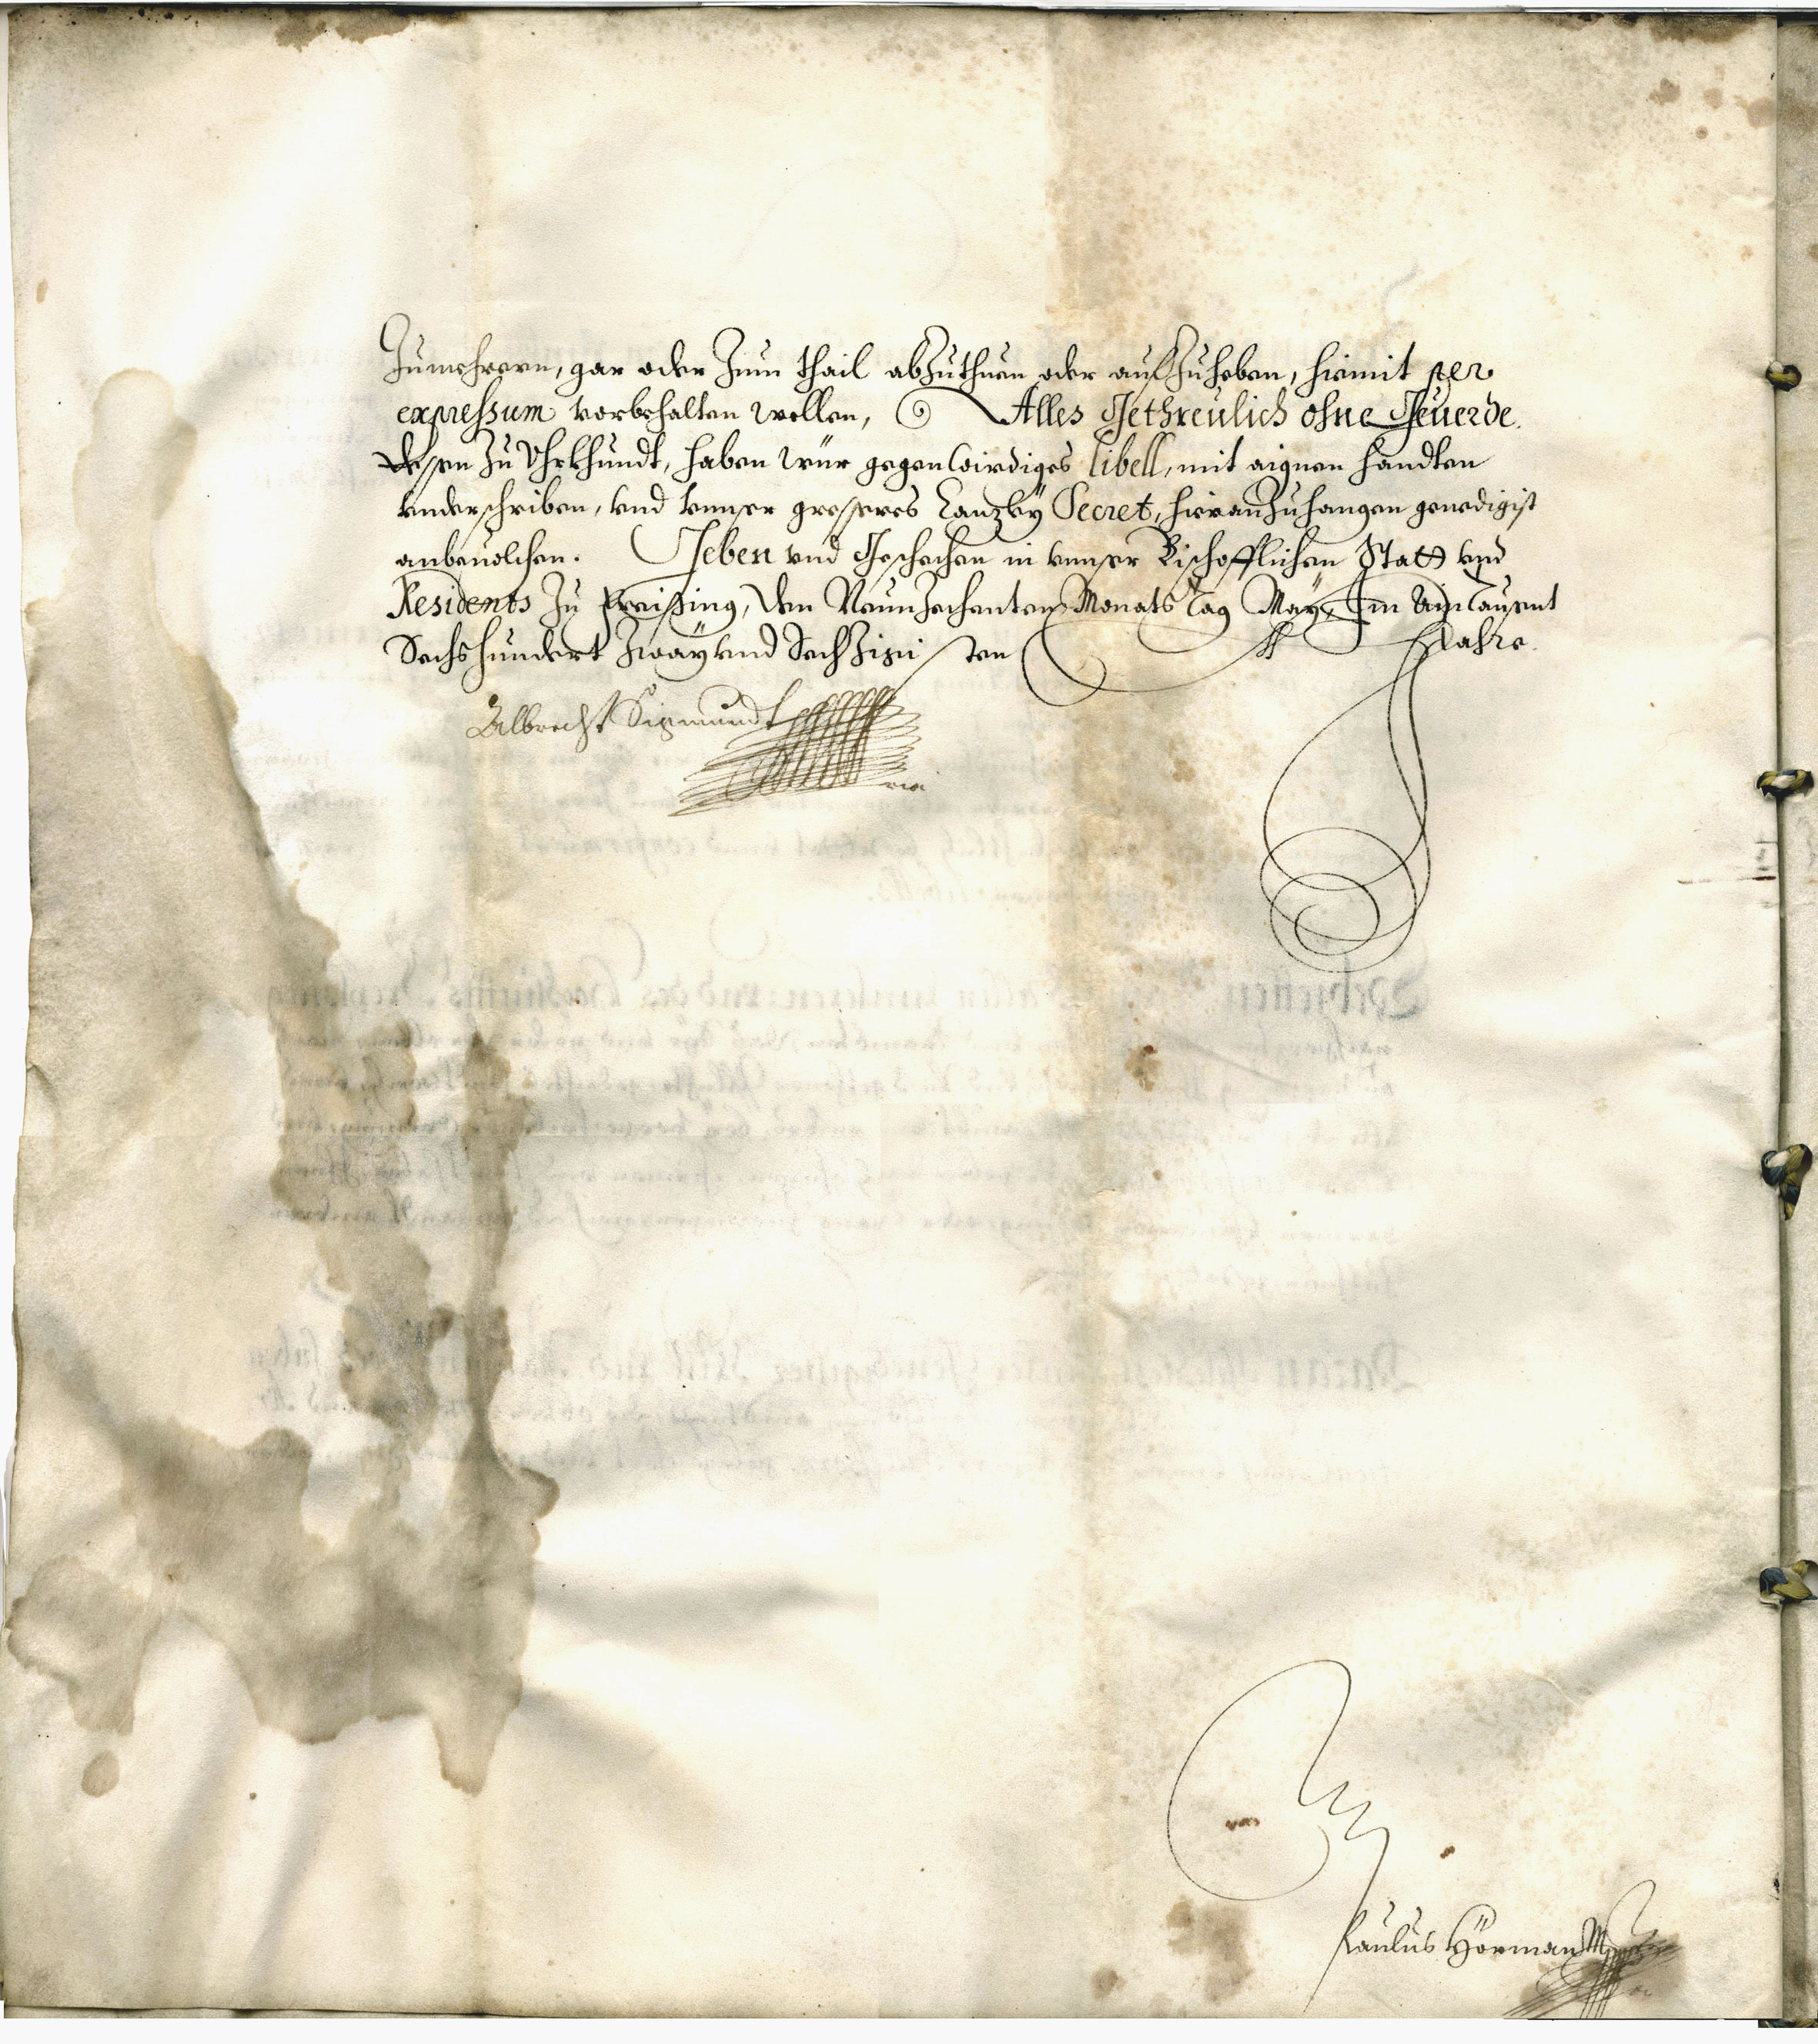 Zumehrern, gar oder Zum thail abZuthuen oder aufZuheben, hiemit per
expressum vorbehalten wellen, Alles Gethreulich ohne Geuerde.
dessen Zu Uhrkhundt, haben wür gegenwirdiges libell, mit aignen handten
vnderschriben, vnd vnnser gresseres Canzley Secret, hieranZuhangen genedigist
anbeuolchen. Geben vnd Geschechen in vnnser Bischofflichen Statt vnd
Residents Zu Freising, den NeunZechenten Monats Tag May, Im Ain Tausent
Sechshundert Zway vnd SechZigisten Jahre.
Albrecht Sigmundt
Paulus Hörman